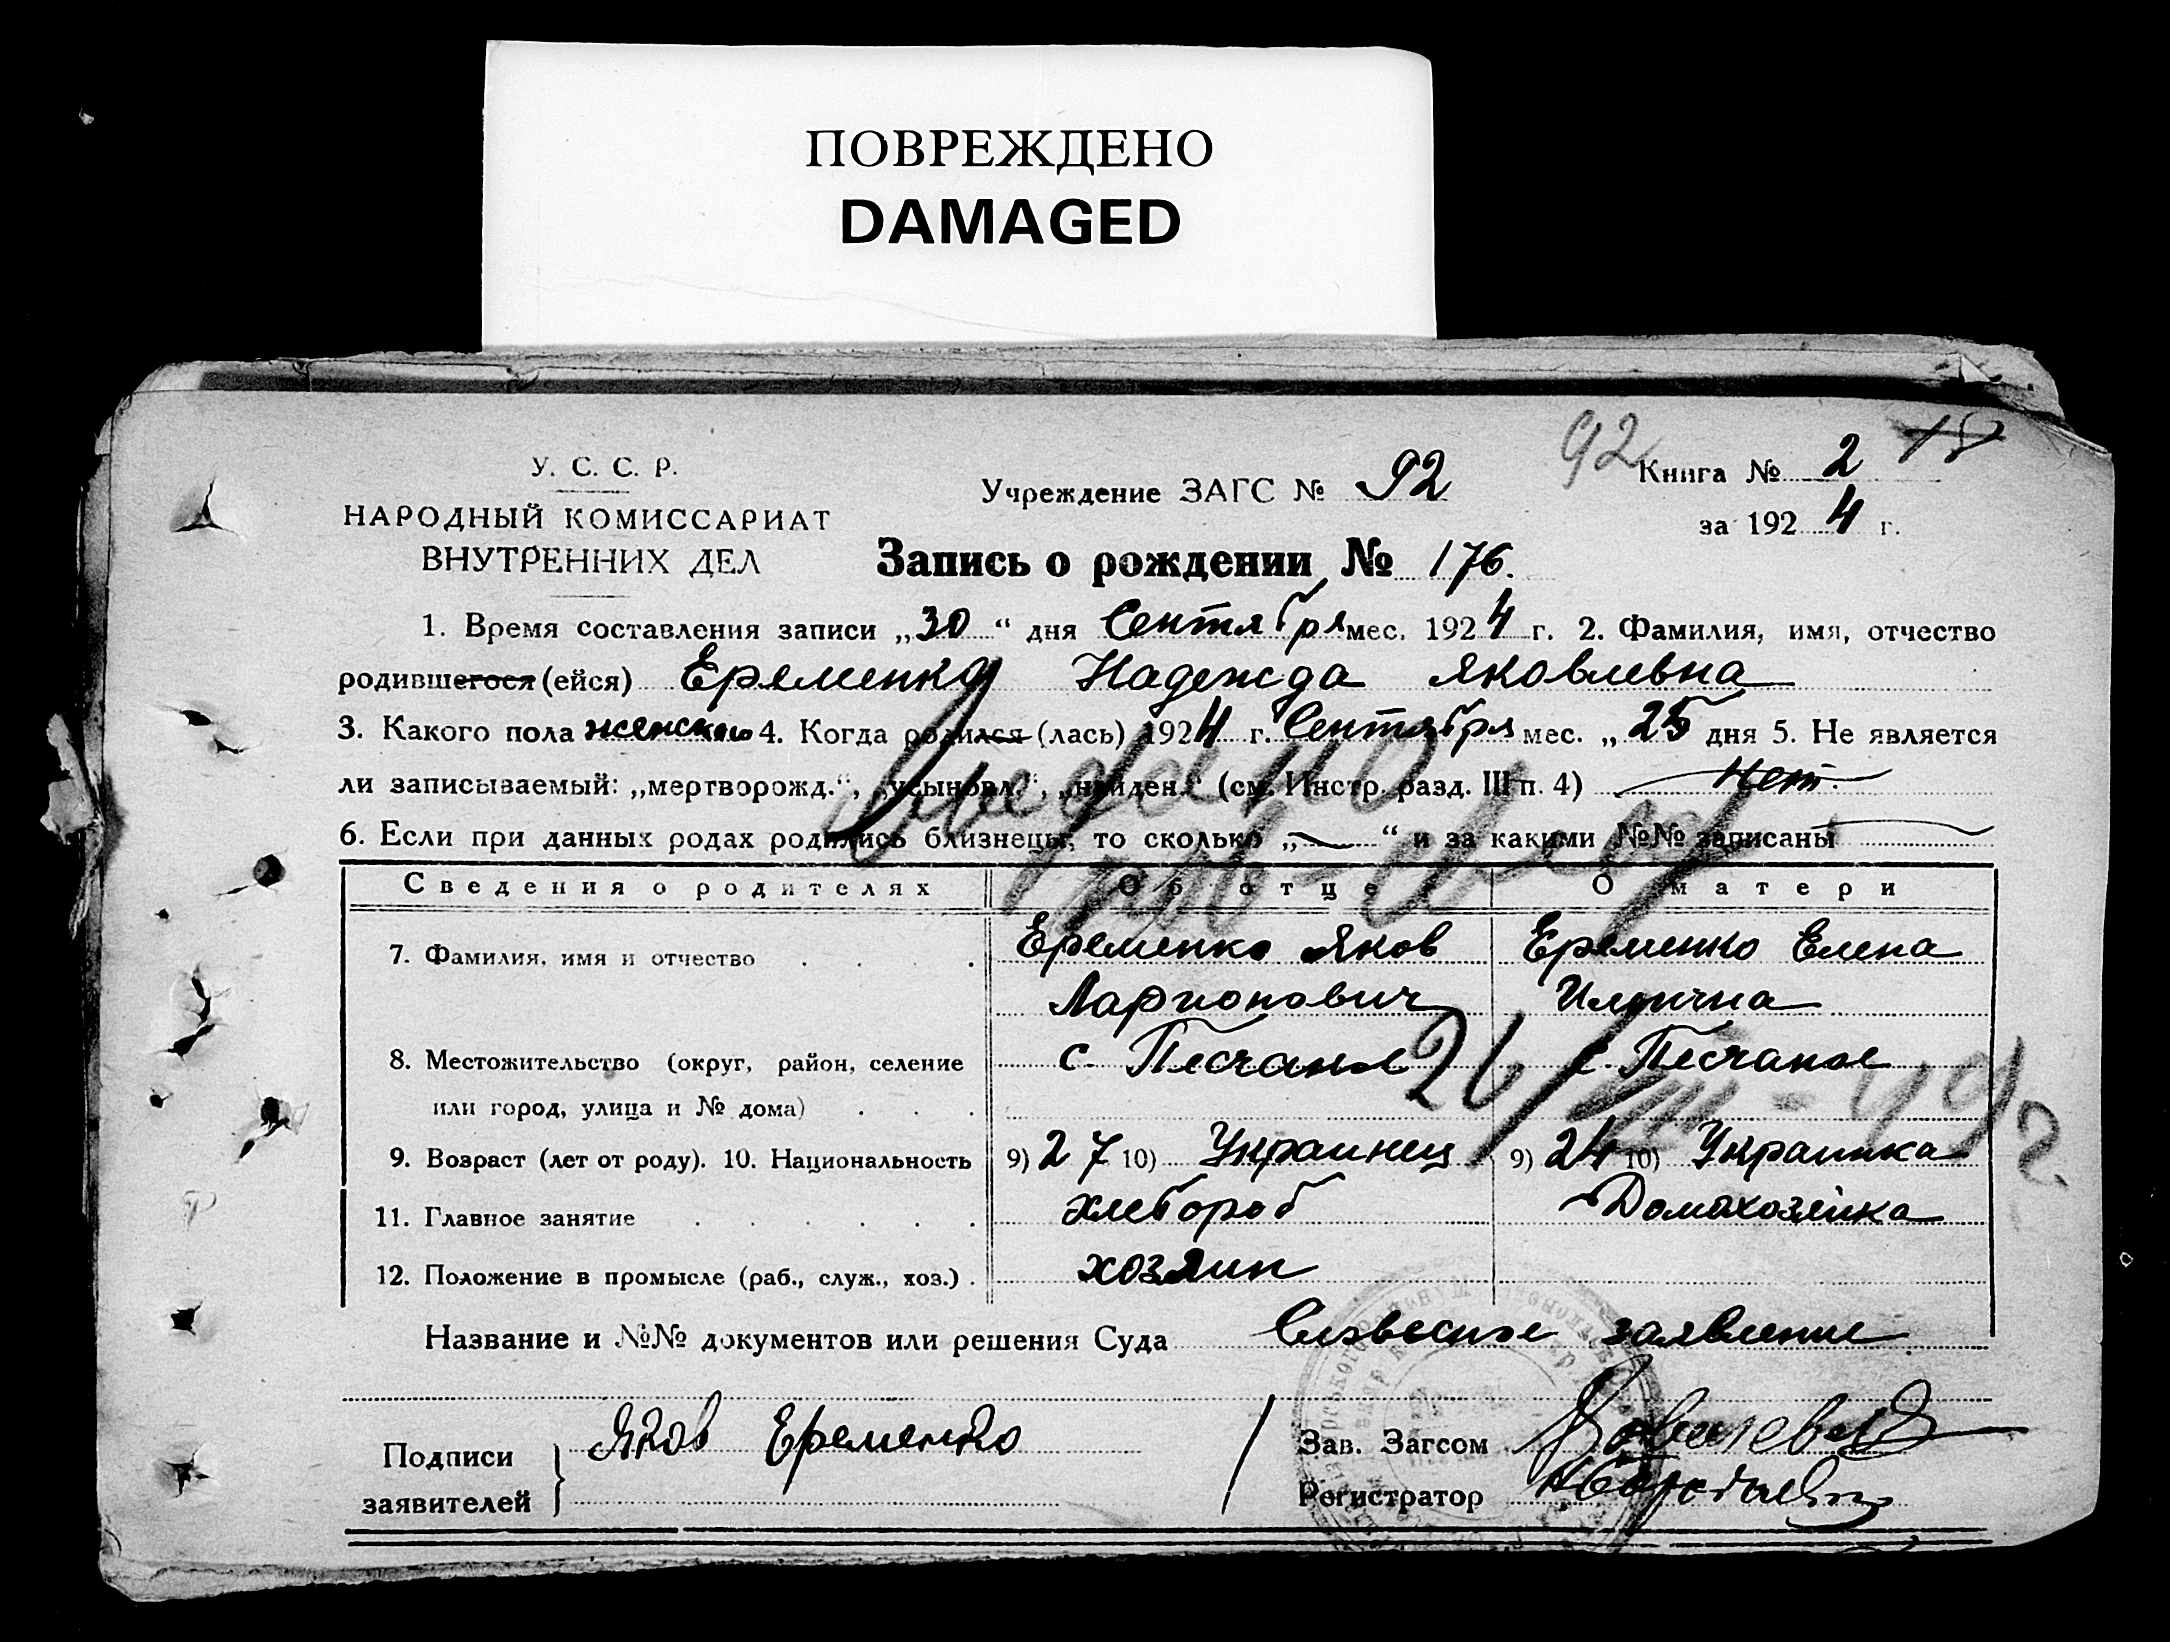 ПОВРЕЖДЕНО
DAMAGED
92
У. С. С. Р.
НАРОДНЫЙ КОМИССАРИАТ
ВНУТРЕННИХ ДЕЛ
Учреждение ЗАГС № 92
Книга № 2 18
за 1924 г.
Запись о рождении № 176.
1. Время составления записи „30“ дня Сентября мес. 1924 г. 2. Фамилия, имя, отчество
родившегося (ейся) Еременко Надежда Яковлевна
3. Какого пола женского 4. Когда родился (лась) 1924 г. Сентября мес. „25 дня 5. Не является
ли записываемый: „мертворожд.“, „усыновл.“, „найден.“ (см. Инстр. разд. III п. 4) Нет.
6. Если при данных родах родились близнецы, то сколько „—“ и за какими №№ записаны
Сведения о родителях Об отце О матери
7. Фамилия, имя и отчество Еременко Яков Еременко Елена
Ларионович Ильична
8. Местожительство (округ, район, селение с. Песчаное с. Песчаное
или город, улица и № дома)
9. Возраст (лет от роду). 10. Национальность 9) 27 10) Украинец 9) 24 10) Украинка
11. Главное занятие хлебороб Домохозяйка
12. Положение в промысле (раб., служ., хоз.) хозяин
Название и №№ документов или решения Суда Словесное заявление
Подписи заявителей Яков Еременко
Зав. Загсом
Регистратор